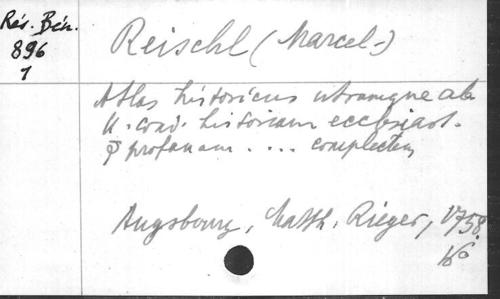 Rés. Bén.
896
1
Reischl (Marcel-)
Atlas historicus utramque ab
historiam ecclesiast.
profanam .... complectens
Augsbourg, Matth. Rieger, 1758.